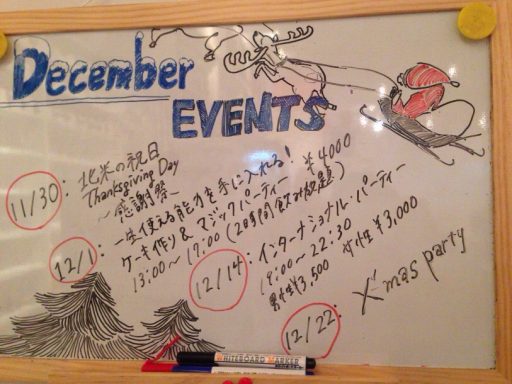 December
EVENTS
11/30: 北米の祝日
Thanksgiving Day
～感謝祭～
12/1: 一生使える能力を手に入れる! ¥4000
ケーキ作り & マジックパーティー
13:00～17:00 (2時間飲み放題)
12/14: インターナショナル・パーティー
19:00～22:30
男性¥3,500 女性¥3,000
12/22: X'mas party
WHITEBOARD MARKER